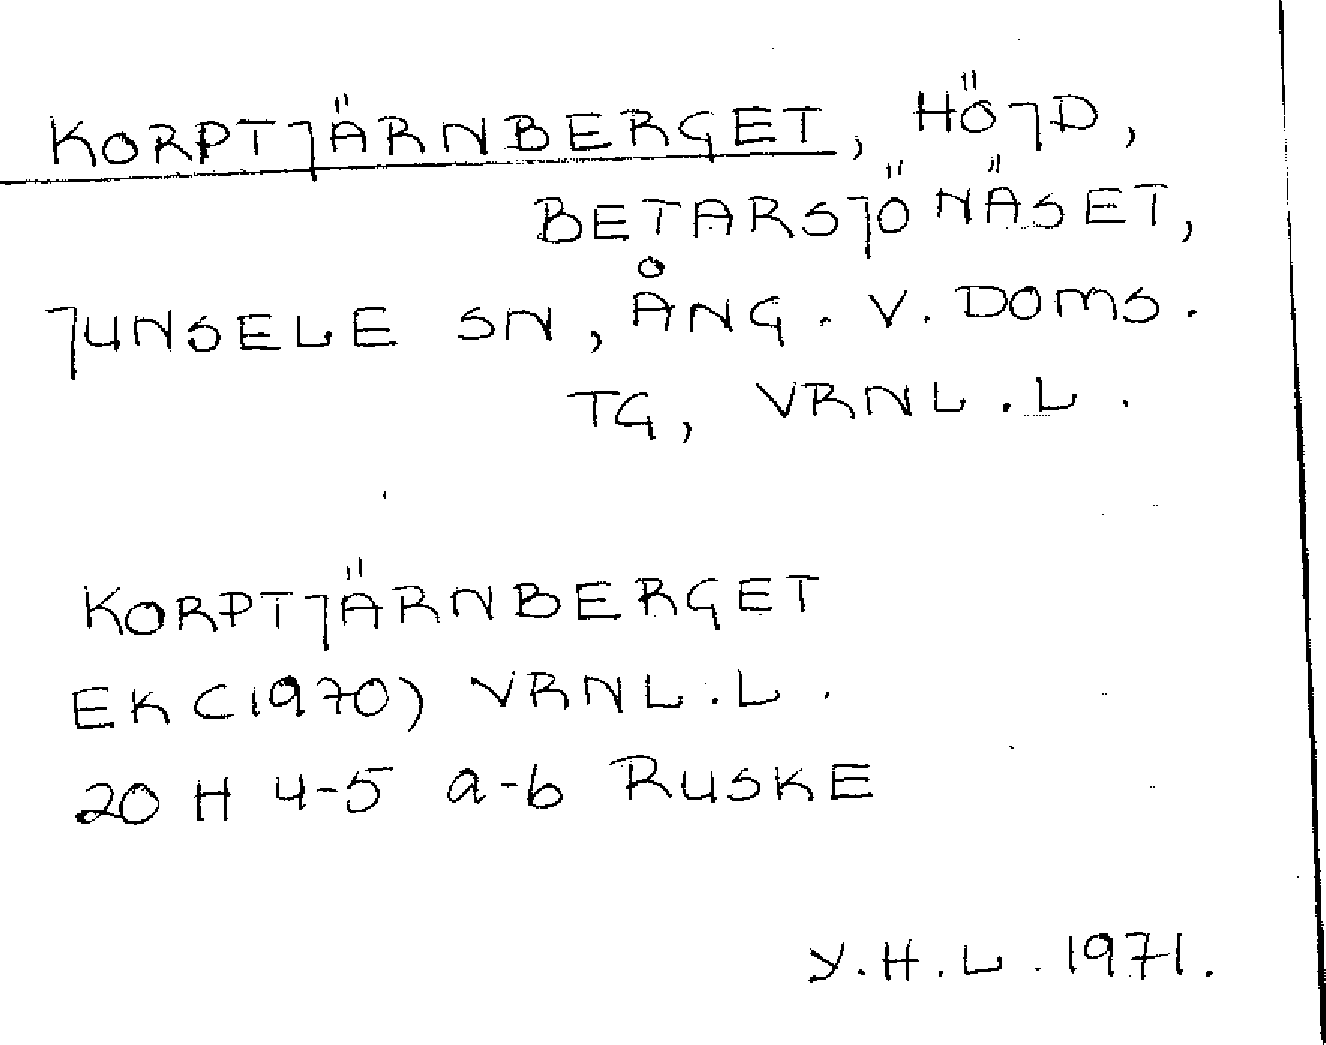 KORPTJÄRNBERGET, HÖJD,
BETARSJÖNÄSET,
JUNSELE SN, ÅNG. V. DOMS.
TG, VRNL.L.
KORPTJÄRNBERGET
EK (1970) VRNL.L.
20 H 4-5 a-b RUSKE
Y.H.L. 1971.